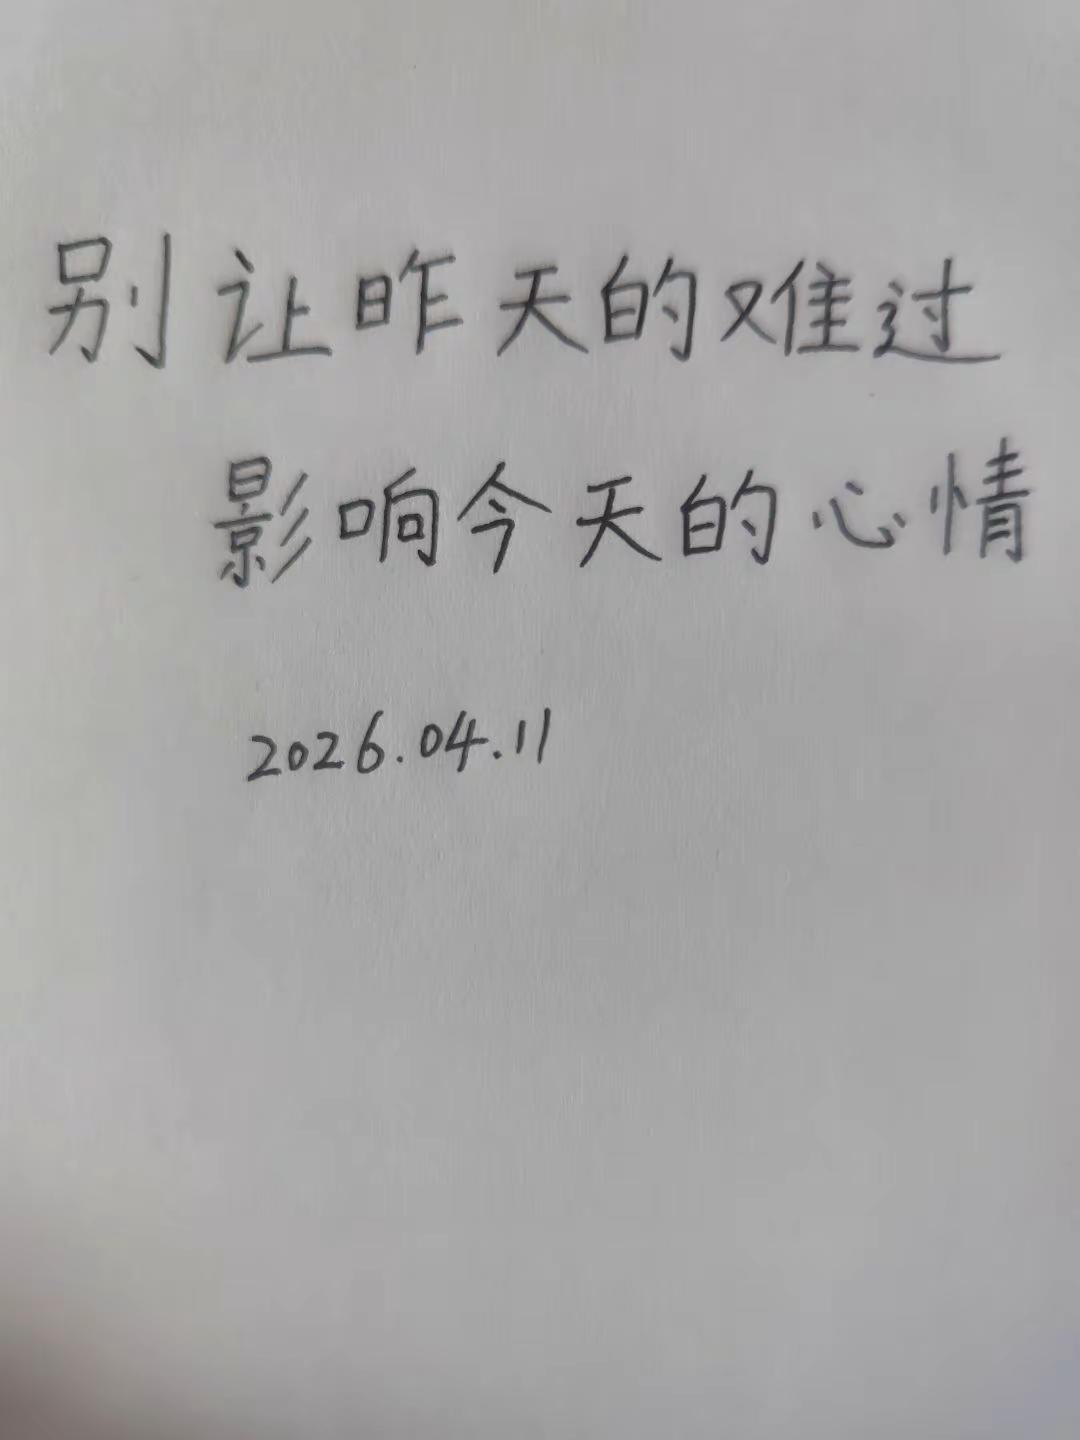 别让昨天的难过
影响今天的心情
2026.04.11